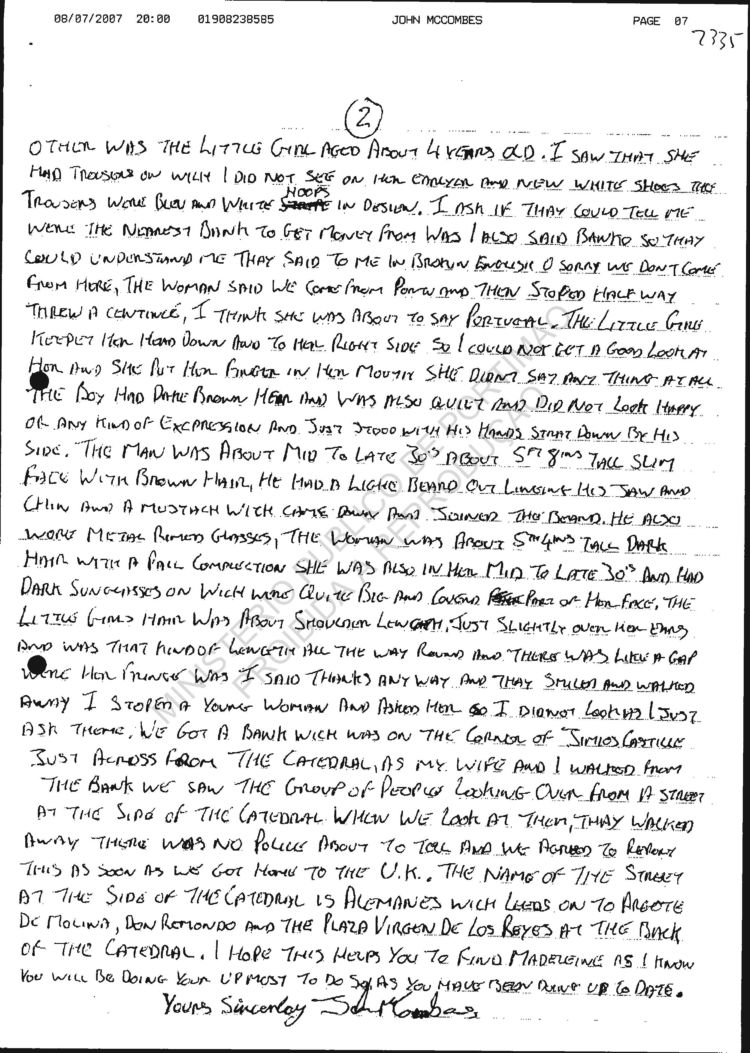 08/07/2007 20:00 01908238585 JOHN MCCOMBES PAGE 07
2335
2
OTHER WAS THE LITTLE GIRL AGED ABOUT 4 YEARS OLD. I SAW THAT SHE
HAD TROUSERS ON WICH I DID NOT SEE ON HER EARLYER AND NEW WHITE SHOES THE
TROUSERS WERE BLEU AND WHITE HOOPS IN DESIGN. I ASK IF THAY COULD TELL ME
WERE THE NEAREST BANK TO GET MONEY FROM WAS I ALSO SAID BANKO SO THAY
COULD UNDERSTAND ME THAY SAID TO ME IN BROKEN ENGLISH O SORRY WE DON'T COME
FROM HERE, THE WOMAN SAID WE COME FROM PORTU AND THEN STOPED HALF WAY
THREW A CENTINCE, I THINK SHE WAS ABOUT TO SAY PORTUGAL. THE LITTLE GIRL
KEEPET HER HEAD DOWN AND TO HER RIGHT SIDE SO I COULD NOT GET A GOOD LOOK AT
HER AND SHE PUT HER FINGER IN HER MOUTH SHE DIDN'T SAY ANY THING AT ALL
THE BOY HAD DARK BROWN HEIR AND WAS ALSO QUILT AND DID NOT LOOK HAPPY
OR ANY KIND OF EXCPRESSION AND JUST STOOD WITH HIS HANDS STRAT DOWN BY HIS
SIDE. THE MAN WAS ABOUT MID TO LATE 30'S ABOUT 5FT 8INS TALL SLIM
FACE WITH BROWN HAIR, HE HAD A LIGHT BEARD OUT LINEING HIS JAW AND
CHIN AND A MUSTACH WICH CAME DOWN AND JOINED THE BEARD. HE ALSO
WORE METAL RIMED GLASSES, THE WOMAN WAS ABOUT 5FT 4INS TALL DARK
HAIR WITH A PALL COMPLECTION SHE WAS ALSO IN HER MID TO LATE 30'S AND HAD
DARK SUNGLASSES ON WICH WERE QUITE BIG AND COVERD PART OF HER FACE. THE
LITTLE GIRLS HAIR WAS ABOUT SHOULDER LENGTH, JUST SLIGHTLY OVER HER EARS
AND WAS THAT KIND OF LENGTH ALL THE WAY ROUND AND THERE WAS LIKE A GAP
WERE HER FRINGE WAS I SAID THANKS ANY WAY AND THAY SMILED AND WALKED
AWAY I STOPED A YOUNG WOMAN AND ASKED HER SO I DID NOT LOOK AS I JUST
ASK THEME. WE GOT A BANK WICH WAS ON THE CORNER OF JIMIOS CASTILLE
JUST ACROSS FROM THE CATEDRAL, AS MY WIFE AND I WALKED FROM
THE BANK WE SAW THE GROUP OF PEOPLE LOOKING OVER FROM A STREET
AT THE SIDE OF THE CATEDRAL WHEN WE LOOK AT THEM, THAY WALKED
AWAY THERE WAS NO POLICE ABOUT TO TELL AND WE AGREED TO REPORT
THIS AS SOON AS WE GOT HOME TO THE U.K. THE NAME OF THE STREET
AT THE SIDE OF THE CATEDRAL IS ALEMANES WICH LEEDS ON TO ARGOTE
DE MOLINA, DON REMONDO AND THE PLAZA VIRGEN DE LOS REYES AT THE BACK
OF THE CATEDRAL. I HOPE THIS HELPS YOU TO FIND MADELEINE AS I KNOW
YOU WILL BE DOING YOUR UPMOST TO DO SO, AS YOU HAVE BEEN DOING UP TO DATE.
YOURS SINCERLAY